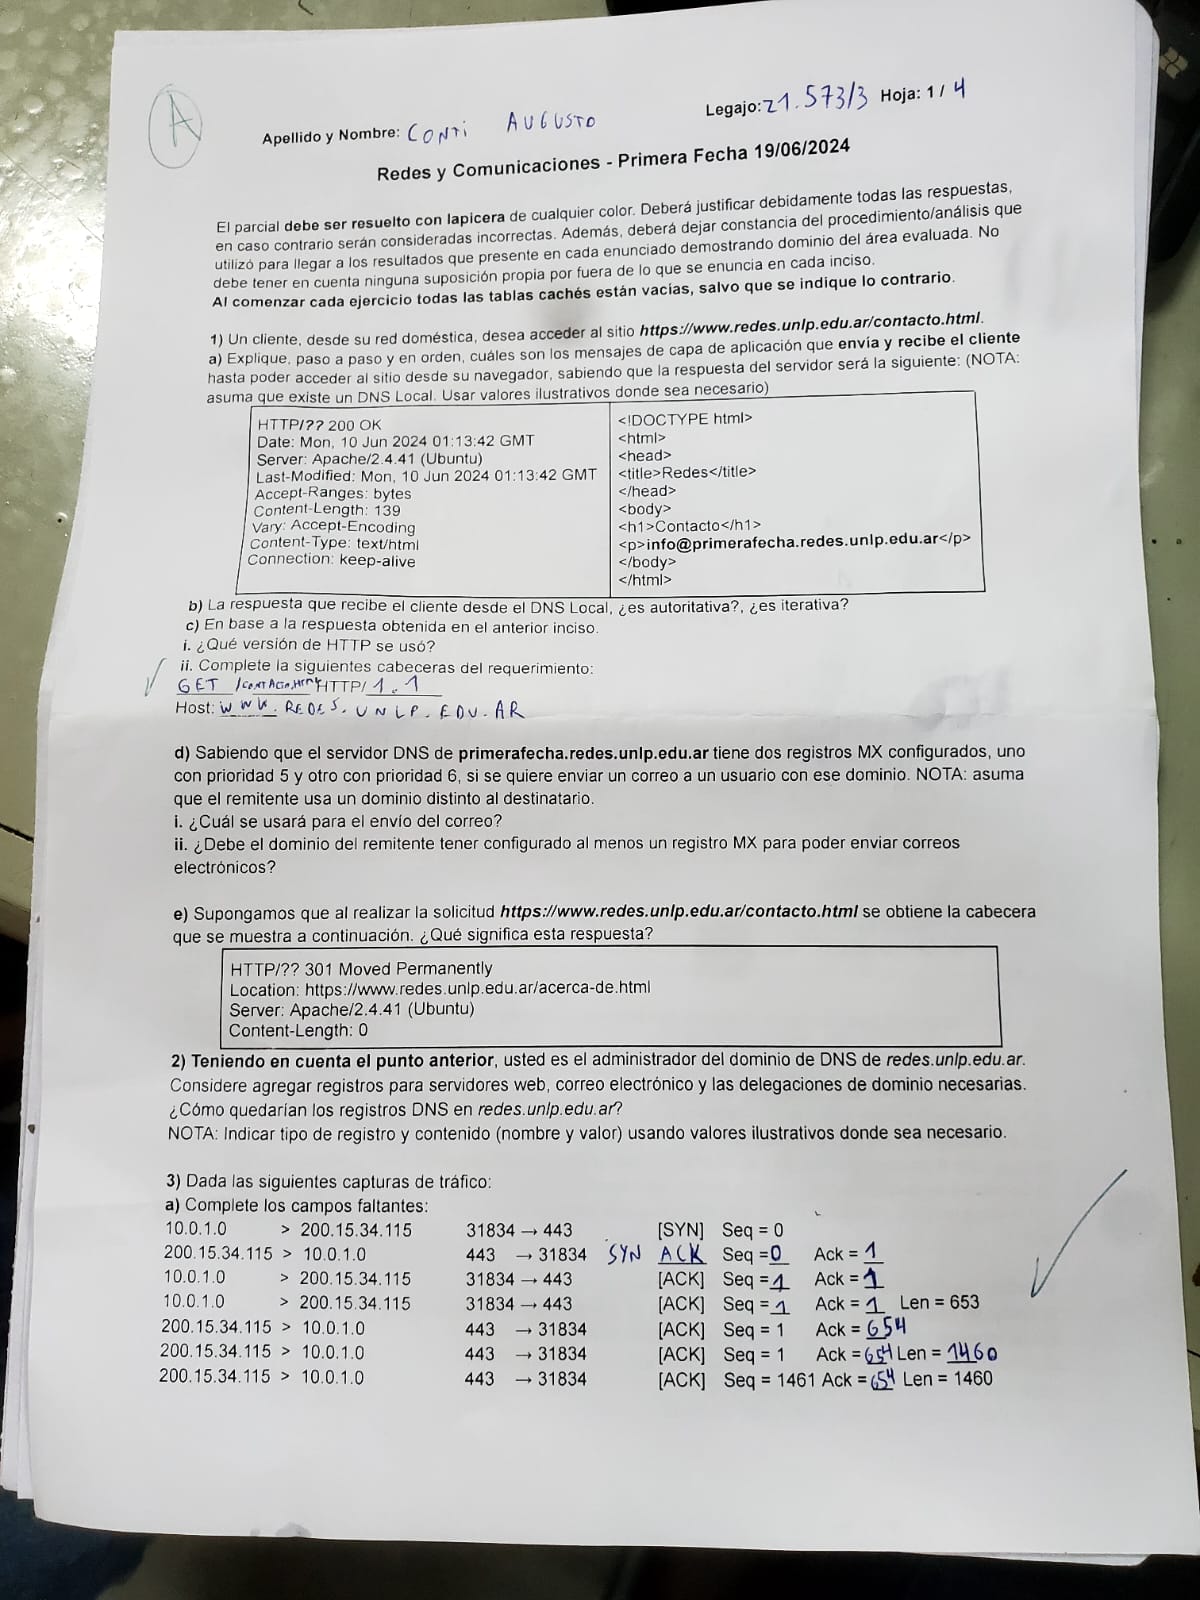 A
Apellido y Nombre: CONTI AUGUSTO
Legajo: 21.573/3 Hoja: 1 / 4
Redes y Comunicaciones - Primera Fecha 19/06/2024
El parcial debe ser resuelto con lapicera de cualquier color. Deberá justificar debidamente todas las respuestas,
en caso contrario serán consideradas incorrectas. Además, deberá dejar constancia del procedimiento/análisis que
utilizó para llegar a los resultados que presente en cada enunciado demostrando dominio del área evaluada. No
debe tener en cuenta ninguna suposición propia por fuera de lo que se enuncia en cada inciso.
Al comenzar cada ejercicio todas las tablas cachés están vacías, salvo que se indique lo contrario.
1) Un cliente, desde su red doméstica, desea acceder al sitio https://www.redes.unlp.edu.ar/contacto.html.
a) Explique, paso a paso y en orden, cuáles son los mensajes de capa de aplicación que envía y recibe el cliente
hasta poder acceder al sitio desde su navegador, sabiendo que la respuesta del servidor será la siguiente: (NOTA:
asuma que existe un DNS Local. Usar valores ilustrativos donde sea necesario)
HTTP/?? 200 OK
Date: Mon, 10 Jun 2024 01:13:42 GMT
Server: Apache/2.4.41 (Ubuntu)
Last-Modified: Mon, 10 Jun 2024 01:13:42 GMT
Accept-Ranges: bytes
Content-Length: 139
Vary: Accept-Encoding
Content-Type: text/html
Connection: keep-alive
<!DOCTYPE html>
<html>
<head>
<title>Redes</title>
</head>
<body>
<h1>Contacto</h1>
<p>info@primerafecha.redes.unlp.edu.ar</p>
</body>
</html>
b) La respuesta que recibe el cliente desde el DNS Local, ¿es autoritativa?, ¿es iterativa?
c) En base a la respuesta obtenida en el anterior inciso.
i. ¿Qué versión de HTTP se usó?
ii. Complete la siguientes cabeceras del requerimiento:
GET /CONTACTO.HTML HTTP/ 1.1
Host: WWW.REDES.UNLP.EDU.AR
d) Sabiendo que el servidor DNS de primerafecha.redes.unlp.edu.ar tiene dos registros MX configurados, uno
con prioridad 5 y otro con prioridad 6, si se quiere enviar un correo a un usuario con ese dominio. NOTA: asuma
que el remitente usa un dominio distinto al destinatario.
i. ¿Cuál se usará para el envío del correo?
ii. ¿Debe el dominio del remitente tener configurado al menos un registro MX para poder enviar correos
electrónicos?
e) Supongamos que al realizar la solicitud https://www.redes.unlp.edu.ar/contacto.html se obtiene la cabecera
que se muestra a continuación. ¿Qué significa esta respuesta?
HTTP/?? 301 Moved Permanently
Location: https://www.redes.unlp.edu.ar/acerca-de.html
Server: Apache/2.4.41 (Ubuntu)
Content-Length: 0
2) Teniendo en cuenta el punto anterior, usted es el administrador del dominio de DNS de redes.unlp.edu.ar.
Considere agregar registros para servidores web, correo electrónico y las delegaciones de dominio necesarias.
¿Cómo quedarían los registros DNS en redes.unlp.edu.ar?
NOTA: Indicar tipo de registro y contenido (nombre y valor) usando valores ilustrativos donde sea necesario.
3) Dada las siguientes capturas de tráfico:
a) Complete los campos faltantes:
10.0.1.0 > 200.15.34.115 31834 → 443 [SYN] Seq = 0
200.15.34.115 > 10.0.1.0 443 → 31834 SYN ACK Seq = 0 Ack = 1
10.0.1.0 > 200.15.34.115 31834 → 443 [ACK] Seq = 1 Ack = 1
10.0.1.0 > 200.15.34.115 31834 → 443 [ACK] Seq = 1 Ack = 1 Len = 653
200.15.34.115 > 10.0.1.0 443 → 31834 [ACK] Seq = 1 Ack = 654
200.15.34.115 > 10.0.1.0 443 → 31834 [ACK] Seq = 1 Ack = 654 Len = 1460
200.15.34.115 > 10.0.1.0 443 → 31834 [ACK] Seq = 1461 Ack = 654 Len = 1460